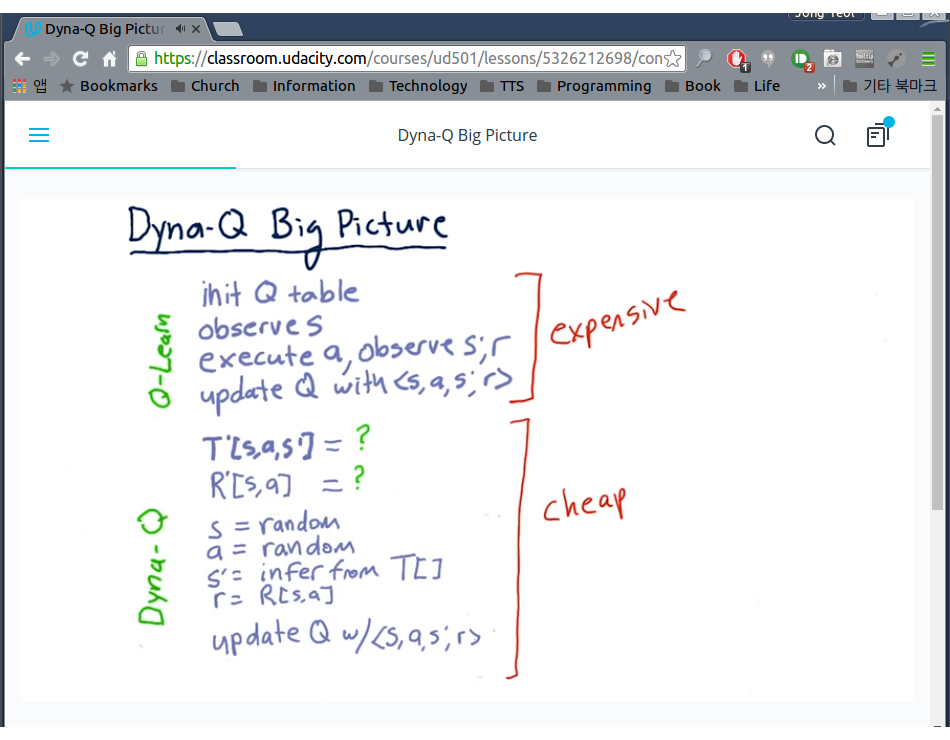 Jong Yeol
Dyna-Q Big Pictur
https://classroom.udacity.com/courses/ud501/lessons/5326212698/con
1
2
앱 Bookmarks Church Information Technology TTS Programming Book Life » 기타 북마크
Dyna-Q Big Picture
Dyna-Q Big Picture
init Q table
observe s
execute a, observe s', r
update Q with <s, a, s', r>
Q-Learn
expensive
T'[s,a,s'] = ?
R'[s,a] = ?
s = random
a = random
s' = infer from T[]
r = R[s,a]
update Q w/<s, a, s', r>
Dyna-Q
cheap